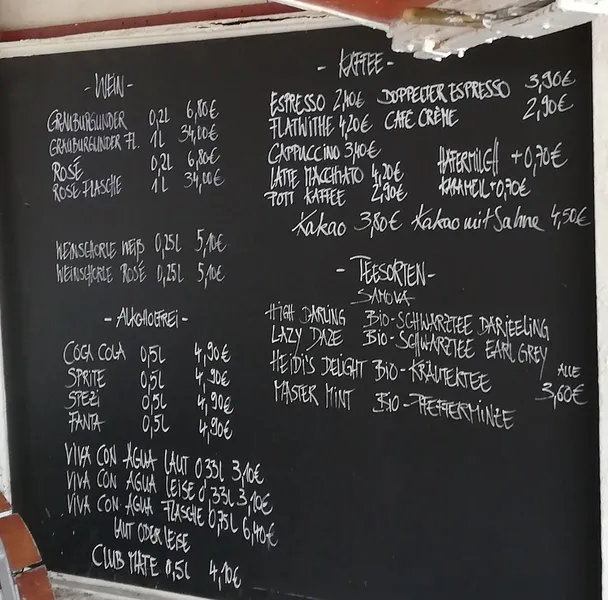 - WEIN -
GRAUBURGUNDER 0,2L 6,80€
GRAUBURGUNDER FL. 1L 34,00€
ROSÉ 0,2L 6,80€
ROSÉ FLASCHE 1L 34,00€
WEINSCHORLE WEIß 0,25L 5,10€
WEINSCHORLE ROSÉ 0,25L 5,10€
- ALKOHOLFREI -
COCA COLA 0,5L 4,90€
SPRITE 0,5L 4,90€
SPEZI 0,5L 4,90€
FANTA 0,5L 4,90€
VIVA CON AGUA LAUT 0,33L 3,10€
VIVA CON AGUA LEISE 0,33L 3,10€
VIVA CON AGUA FLASCHE 0,75L 6,40€
LAUT ODER LEISE
CLUB MATE 0,5L 4,10€
- KAFFEE -
ESPRESSO 2,40€ DOPPELTER ESPRESSO 3,90€
FLATWITHE 4,20€ CAFE CRÈME 2,90€
CAPPUCCINO 3,40€ HAFERMILCH +0,70€
LATTE MACCHIATO 4,20€ KARAMELL +0,70€
POTT KAFFEE 2,90€
Kakao 3,80€ Kakao mit Sahne 4,50€
- TEESORTEN -
SAMOVA
HIGH DARLING BIO-SCHWARZTEE DARJEELING
LAZY DAZE BIO-SCHWARZTEE EARL GREY
HEIDI'S DELIGHT BIO-KRÄUTERTEE ALLE
MASTER MINT BIO-PFEFFERMINZE 3,60€